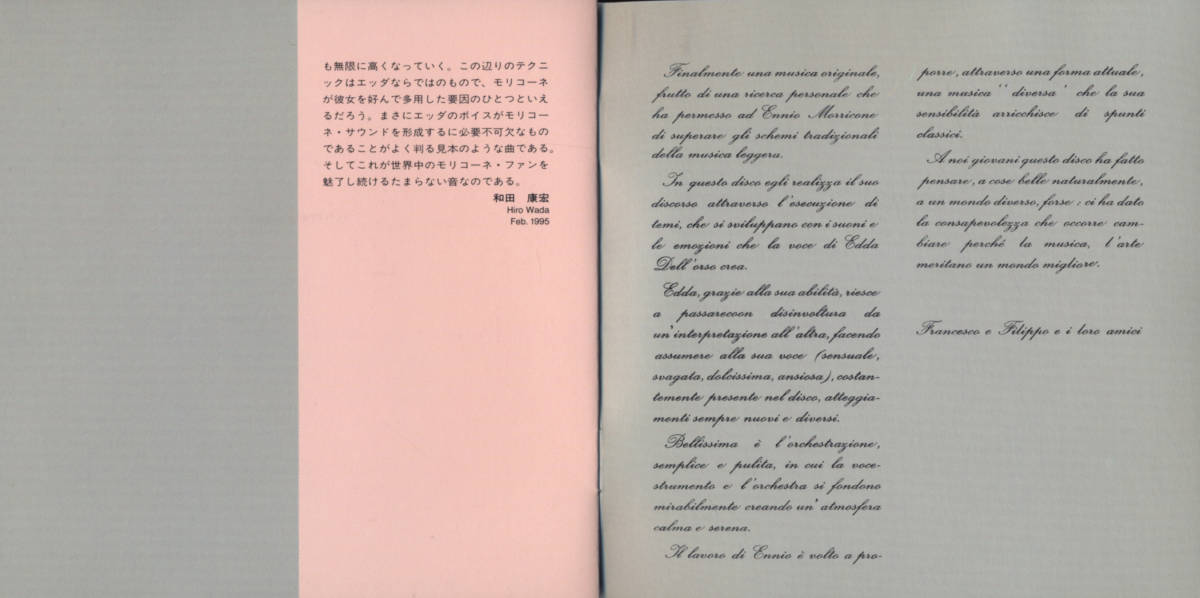 も無限に高くなっていく。この辺りのテクニ
ックはエッダならではのもので、モリコーネ
が彼女を好んで多用した要因のひとつといえ
るだろう。まさにエッダのボイスがモリコー
ネ・サウンドを形成するに必要不可欠なもの
であることがよく判る見本のような曲である。
そしてこれが世界中のモリコーネ・ファンを
魅了し続けるたまらない音なのである。
和田 康宏
Hiro Wada
Feb. 1995
Finalmente una musica originale,
frutto di una ricerca personale che
ha permesso ad Ennio Morricone
di superare gli schemi tradizionali
della musica leggera.
In questo disco egli realizza il suo
discorso attraverso l'esecuzione di
temi, che si sviluppano con i suoni e
le emozioni che la voce di Edda
Dell'orso crea.
Edda, grazie alla sua abilità, riesce
a passarecoon disinvoltura da
un'interpretazione all'altra, facendo
assumere alla sua voce (sensuale,
svagata, dolcissima, ansiosa), costan-
temente presente nel disco, atteggia-
menti sempre nuovi e diversi.
Bellissima è l'orchestrazione,
semplice e pulita, in cui la voce-
strumento e l'orchestra si fondono
mirabilmente creando un' atmosfera
calma e serena.
Il lavoro di Ennio è volto a pro-
porre, attraverso una forma attuale,
una musica '' diversa ' che la sua
sensibilità arricchisce di spunti
classici.
A noi giovani questo disco ha fatto
pensare, a cose belle naturalmente,
a un mondo diverso, forse : ci ha dato
la consapevolezza che occorre cam-
biare perché la musica, l'arte
meritano un mondo migliore.
Francesco e Filippo e i loro amici